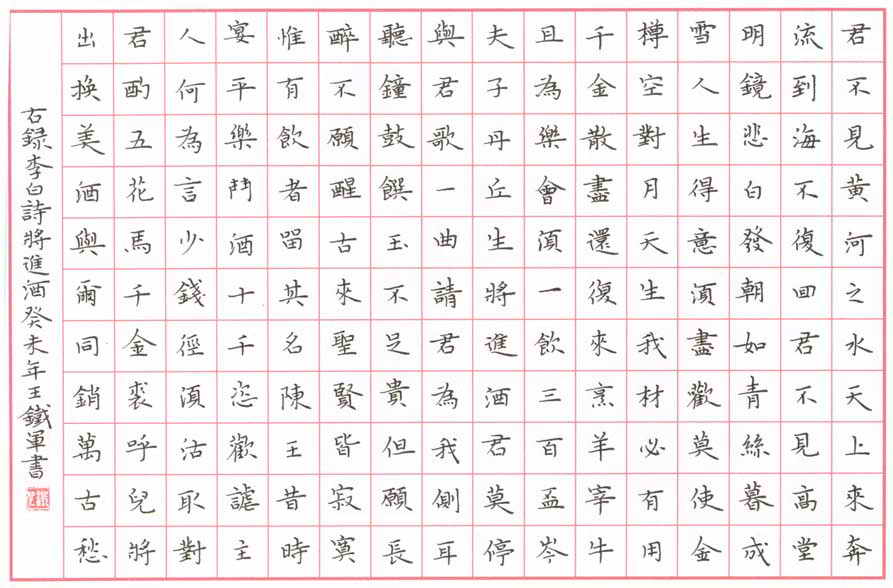 君不見黃河之水天上來奔
流到海不復回君不見高堂
明鏡悲白發朝如青絲暮成
雪人生得意須盡歡莫使金
樽空對月天生我材必有用
千金散盡還復來烹羊宰牛
且為樂會須一飲三百盃岑
夫子丹丘生將進酒君莫停
與君歌一曲請君為我側耳
聽鐘鼓饌玉不足貴但願長
醉不願醒古來聖賢皆寂寞
惟有飲者留其名陳王昔時
宴平樂鬥酒十千恣歡謔主
人何為言少錢徑須沽取對
君酌五花馬千金裘呼兒將
出換美酒與爾同銷萬古愁
右錄李白詩將進酒癸未年王鐵軍書